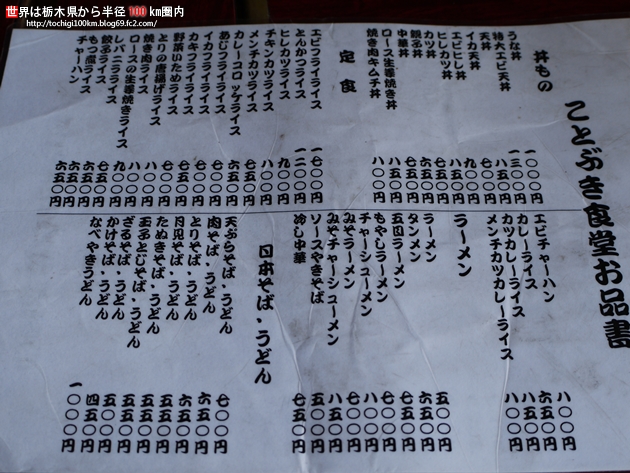 ことぶき食堂お品書
丼もの
うな丼 一〇〇〇円
特大エビ天丼 一三〇〇円
天丼 八五〇円
イカ天丼 七〇〇円
エビヒレ丼 九〇〇円
ヒレカツ丼 八五〇円
カツ丼 七五〇円
親子丼 六五〇円
中華丼 七五〇円
ロース生姜焼き丼 八五〇円
焼き肉キムチ丼 八〇〇円
定食
エビフライライス 一七〇〇円
とんかつライス 一二〇〇円
ヒレカツライス 九〇〇円
チキンカツライス 八〇〇円
メンチカツライス 七五〇円
カレーコロッケライス 六五〇円
あじフライライス 七〇〇円
イカフライライス 七〇〇円
カキフライライス 七五〇円
野菜いためライス
とりの唐揚げライス 八〇〇円
焼き肉ライス 八〇〇円
ロースの生姜焼きライス 九〇〇円
レバニラライス 七五〇円
餃子ライス 七五〇円
もつ煮ライス 六五〇円
チャーハン 六五〇円
エビチャーハン 八〇〇円
カレーライス 六五〇円
カツカレーライス 八五〇円
メンチカツカレーライス 八〇〇円
ラーメン
ラーメン 五〇〇円
タンメン 六五〇円
五目ラーメン 七五〇円
もやしラーメン
チャーシューメン 八〇〇円
みそラーメン 七〇〇円
みそチャーシューメン 八五〇円
ソースやきそば 五五〇円
冷し中華 七五〇円
日本そば・うどん
天ぷらそば・うどん 七〇〇円
肉そば・うどん 六五〇円
とりそば・うどん 六五〇円
月見そば・うどん 五五〇円
たぬきそば・うどん 五五〇円
玉子とじそば・うどん 五五〇円
ざるそば・うどん 五五〇円
かけそば・うどん 四五〇円
なべやきうどん 一〇〇〇円
世界は栃木県から半径100km圏内
http://tochigi100km.blog69.fc2.com/